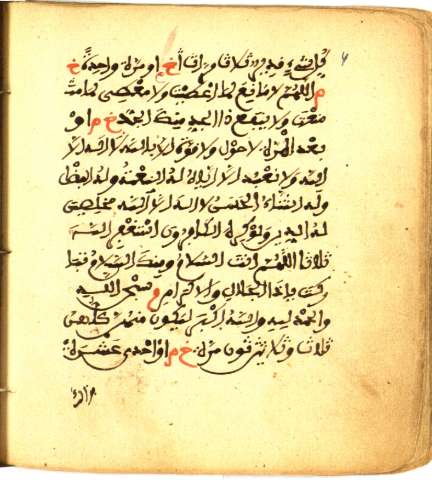 كل شيء قدير ثلاث مرات خ او مرة واحدة خ
م اللهم لا مانع لما اعطيت ولا معطي لما
منعت ولا ينفع ذا الجد منك الجد خ م او
بعد المرة لا حول ولا قوة الا بالله لا اله الا
الله ولا نعبد الا اياه له النعمة وله الفضل
وله الثناء الحسن لا اله الا الله مخلصين
له الدين ولو كره الكافرون استغفر الله
ثلاثا اللهم انت السلام ومنك السلام تبا
ركت ياذا الجلال والاكرام م و سبحن الله
والحمد لله والله اكبر ليكون منهن كلهن
ثلاثا وثلاثون مرة خ م او احدى عشرة